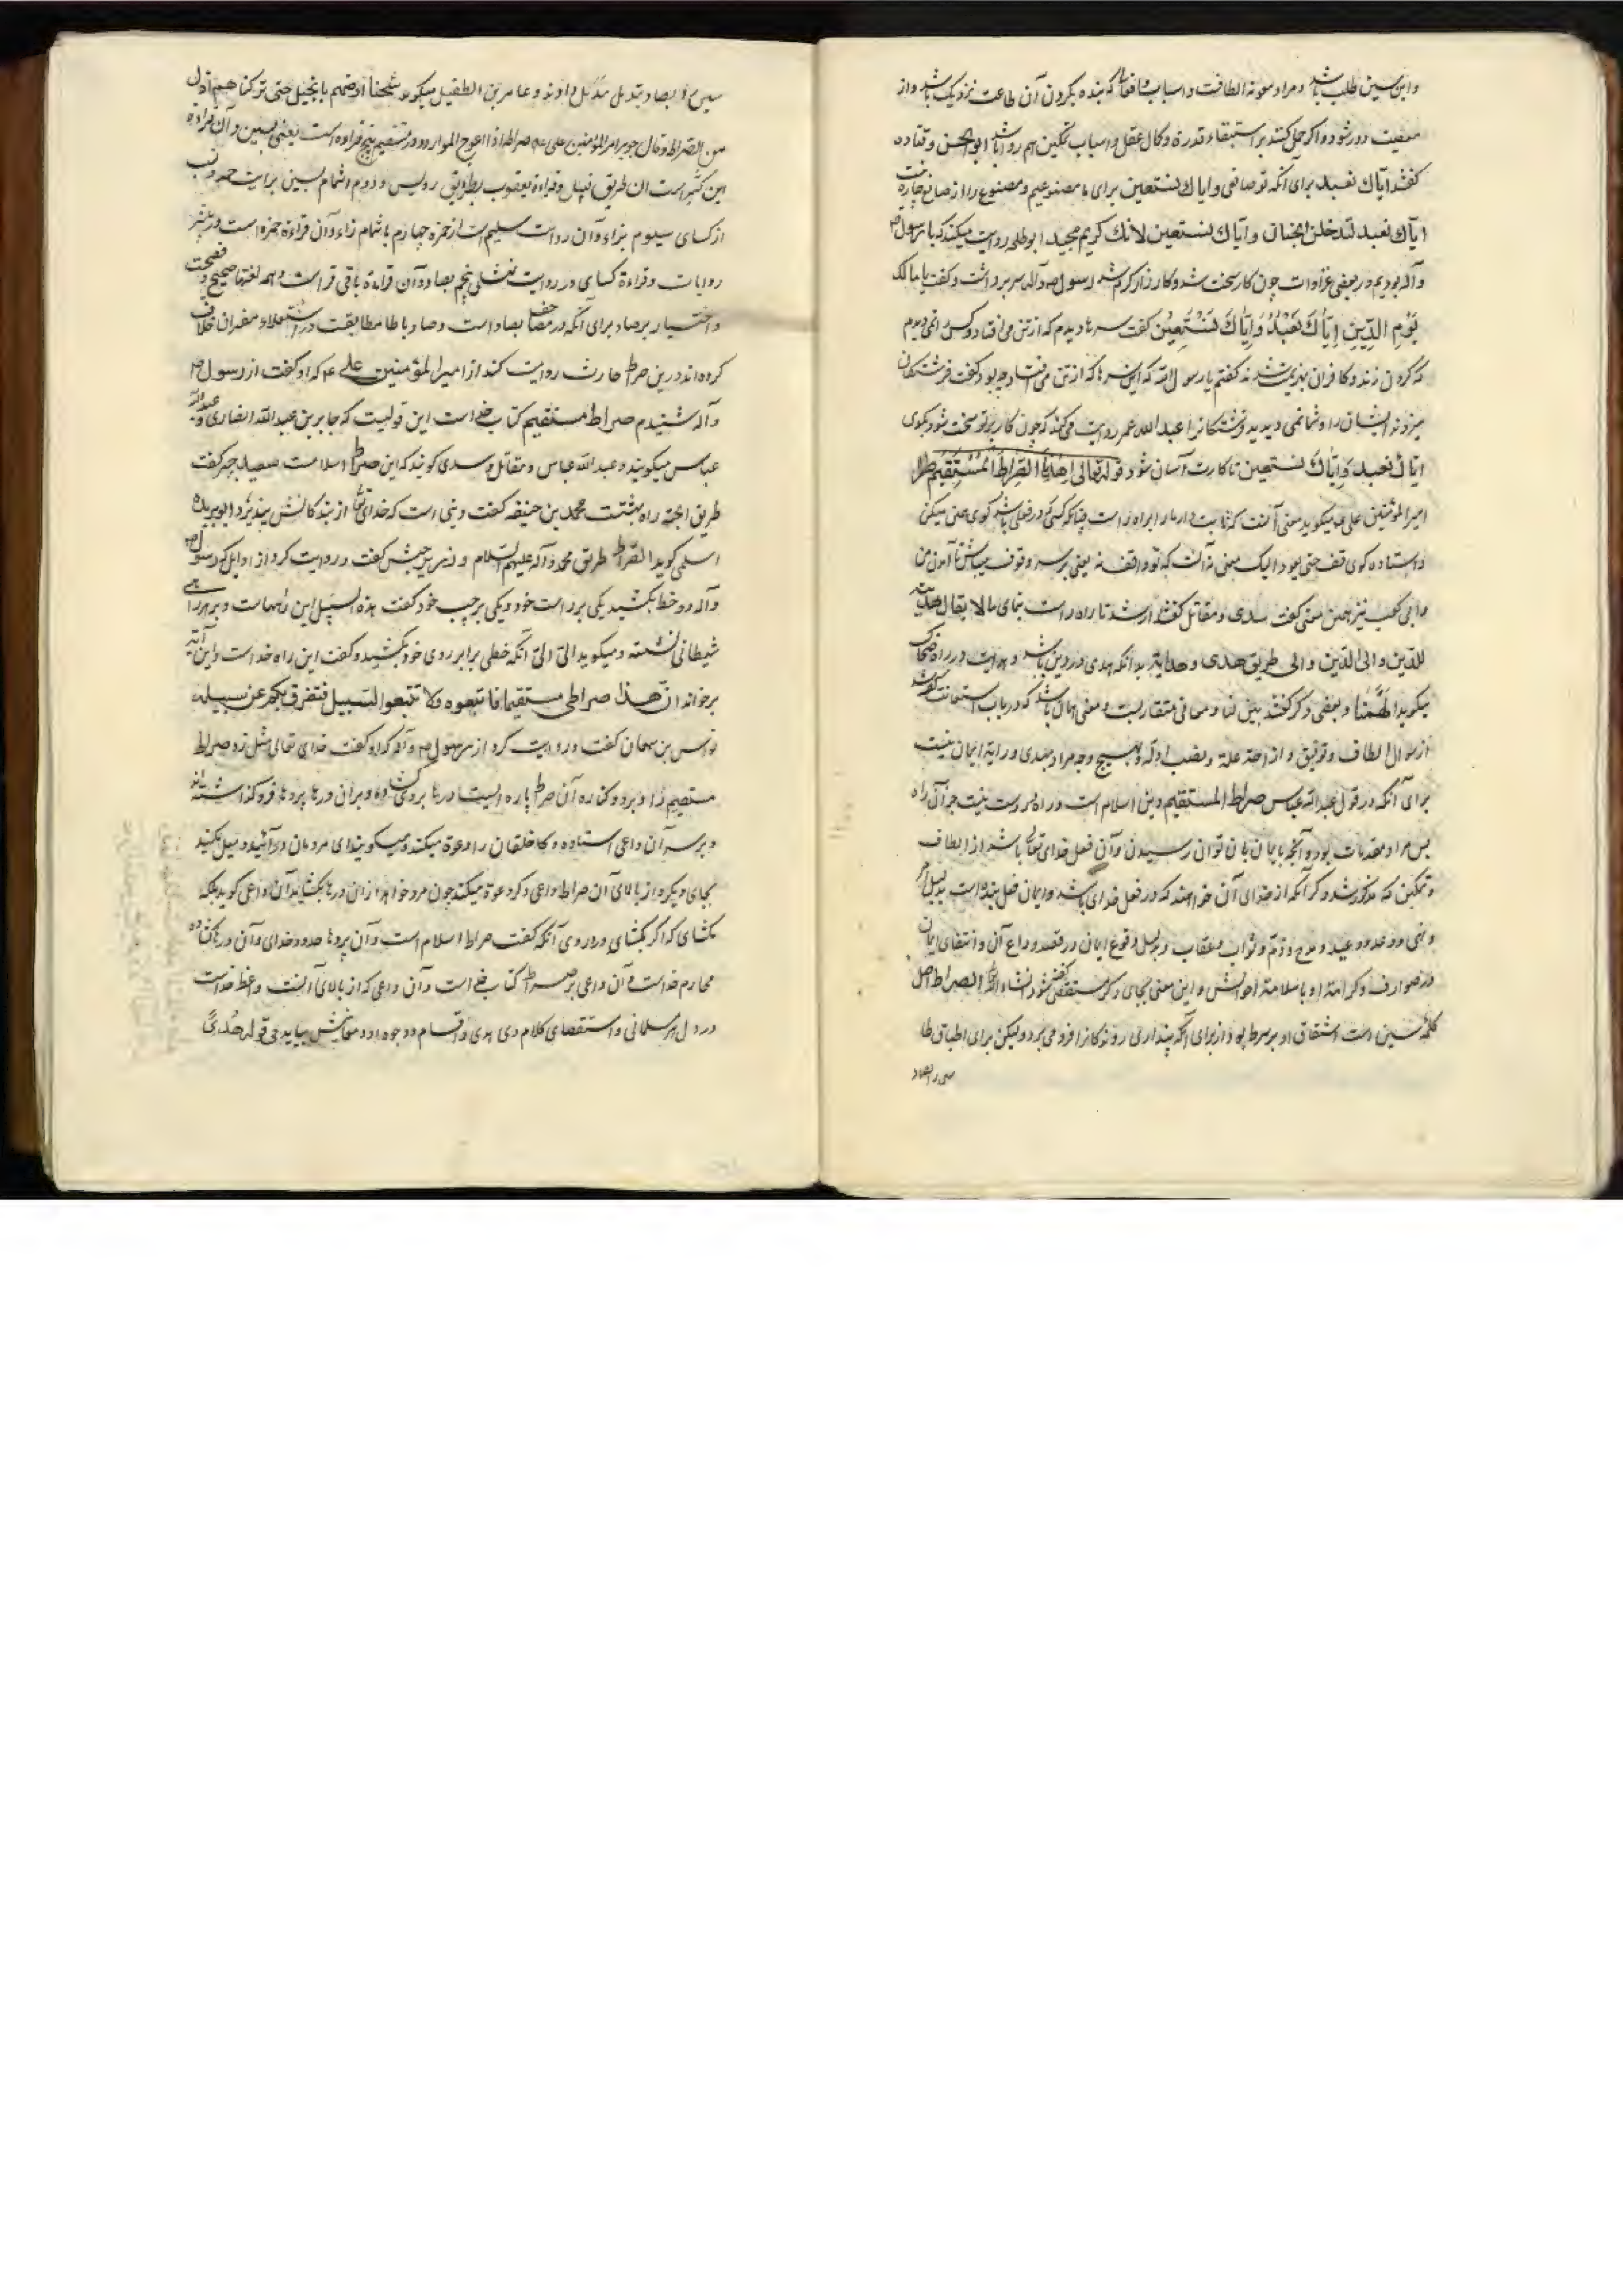 واین سین طلب باشد و مراد معونه الطافت و اسباب و افعالی که بنده بکردن آن طاعت نزدیک باشد و از
معصیت دور شود و اگر حمل کنند بر استبقاء قدرة و کمال عقل و اسباب تمکین هم روا باشد ابوالحسن و قتاده
کفتند ایاك نعبد برای آنکه تو صانعی و ایاك نستعین برای ما مصنوعیم و مصنوع را از صانع چاره نیست
ایاك نعبد لتدخلن الجنان و ایاك نستعین لانك کریم مجید ابو طلحه روایت میکند که با رسول ص
وآله بودیم در بعضی غزاوات چون کار سخت شد و کارزار کرم شد رسول ص وآله سر برداشت و کفت یا مالك
یَوْمِ الدِّینِ اِیَّاكَ نَعْبُدُ وَاِیَّاكَ نَسْتَعِیْنُ کفت سرها دیدم که از تن می افتاد و کس را نمی دیدم
که کردن زند و کافران بهزیمت شدند کفتم یا رسول الله که این سرها که از تن می افتاد چه بود کفت فرشتکان
میزدند ایشان را و شما نمی دیدید فرشتکانرا عبد الله عمر روایت می کند که چون کار بر تو سخت شود بکوی
ایاك نعبد وَاِیَّاكَ نستعین تا کارت آسان شود قوله تعالی اِهْدِنَا الصِّرَاطَ الْمُسْتَقِیْمَ
امیر المؤمنین علی ع میکوید معنی آنست که ثابت دار ما را بر راه راست چنانکه کسی در فعلی باشد کوی
و استاده کوی قف حتی یعود الیك معنی نه آنست که تو واقف نه یعنی بر سر وقوف میباش تا آمدن من
وابی کعب نیز همین معنی کفت سدی و مقاتل کفتند ارشدنا راه راست بنمای ما را یقال هدیته
للدّین والی الدّین والی طریق هدی و هدایة بدانکه هدی در دین باشد و هدایت در راه ضحاک
میکوید اَلْهِمْنَا و بعضی دکر کفتند بیّن لنا و معانی متقاربست و معنی همان باشد که در باب استعانت کفته شد
از سوال الطاف و توفیق و ازاحة علة و نصب ادلّه و بهیچ وجه مراد بهدی و رایة ایمان نیست
برای آنکه در قول عبدالله عباس صراط المستقیم دین اسلام است و راه بر وی نیست جز آن راه
پس مراد مقدمات بود و آنچه بایمان بآن توان رسیدن و آن فعل خدای تعالی باشد از الطاف
و تمکین که مذکور شد و کر آنکه از خدای آن خواهند که در فعل خدای باشد و ایمان فعل بنده است بدلیل امر
و نهی و وعد و وعید و مدح و ذمّ و ثواب و عقاب و بدلیل وقوع ایمان در قصد و دواع آن و انتفای ایمان
در صوارف و کراهة او با سلامة احوالش و این معنی بجای دکر مستقصی کفته شود انشاء الله الصراط اصل
کلمه سین است اشتقاق او بر سرط بود از برای آنکه پنداری رونده کانرا فرو می برد و لیکن برای اطباق طا
سین را بصاد
سین را بصاد بتدیل مبدّل داوند و عامر بن الطفیل میکوید شحنا ارضهم بالخیل حتی ترکناهم اذل
من الصّراط و قال جریر امیر المؤمنین علی صراط اذا اعوج الموارد مستقیم پنج قراءه است یعنی بسین و آن قراءه
ابن کثیر است از طریق قنبل و قراءة یعقوب بطریق رویس و دوم اشمام بسین
از کسای سیوم بزاء وآن روایت سلیم است از حمزه چهارم باشمام زاء وآن قراءة حمزه است در بیشتر
روایات و قراءة کسای در روایت نهشلی پنجم بصاد وآن قراءة باقی قراست و همه لغتها صحیح و فصیحست
و اختیار بر صاد برای آنکه در مصاحف بصاد است و صاد با طا مطابقت در استعلاء مفسران خلاف
کرده اند درین صراط حارث روایت کند از امیر المؤمنین علی ع که او کفت از رسول ص
وآله شنیدم صراط مستقیم کتاب خداست این قولیست که جابر بن عبد الله انصاری و عبد الله
عباس میکویند و عبد الله عباس و مقاتل و سدی کویند که این صراط اسلامست سعید جبیر کفت
طریق الجنة راه بهشتت محمد بن حنیفه کفت دینی است که خدای تعالی از بندکانش نپذیرد ابو بریده
اسلمی کوید الصّراط طریق محمد وآله علیهم السّلام و زر بن حبیش کفت و روایت کرد از اوایل که رسول ص
وآله دو خط بکشید یکی بر راست خود و یکی بر چپ خود کفت هذه السبل این راههاست و بر هر راهی
شیطانی نشسته و میکوید الیّ الیّ آنکه خطی برابر روی خود بکشید و کفت این راه خداست و این آیه
برخواند انّ هذا صراطی مستقیما فاتبعوه ولا تتبعوا السبیل فتفرق بکم عن سبیله
نواس بن سمعان کفت و روایت کرد از رسول ص وآله که او کفت خدای تعالی مثل زد صراط
مستقیم را و بر دو کناره آن صراط باره ایست درها بر وی کشاده و بران درها پردها فرو کذاشته اند
و بر سر آن داعی استاده و کا خلقان را دعوة میکند و میکویند ای مردمان درآئید و میل مکنید
بجای دیکر و از بالای آن صراط داعی دکر دعوة میکند چون مرد خواهد از آن درها بکشاید آن داعی کوید ویحک
مکشای که اکر بکشای در او روی آنکه کفت صراط اسلام است وآن پردها حدود خدای وآن درها کشاده
محارم خداست وآن داعی بر سر صراط کتاب خداست وآن داعی که از بالای آنست واعظ خداست
در دل هر مسلمانی و استقصای کلام دی هدی و اقسام و وجوه او و معانیش بیاید فی قوله هُدیً